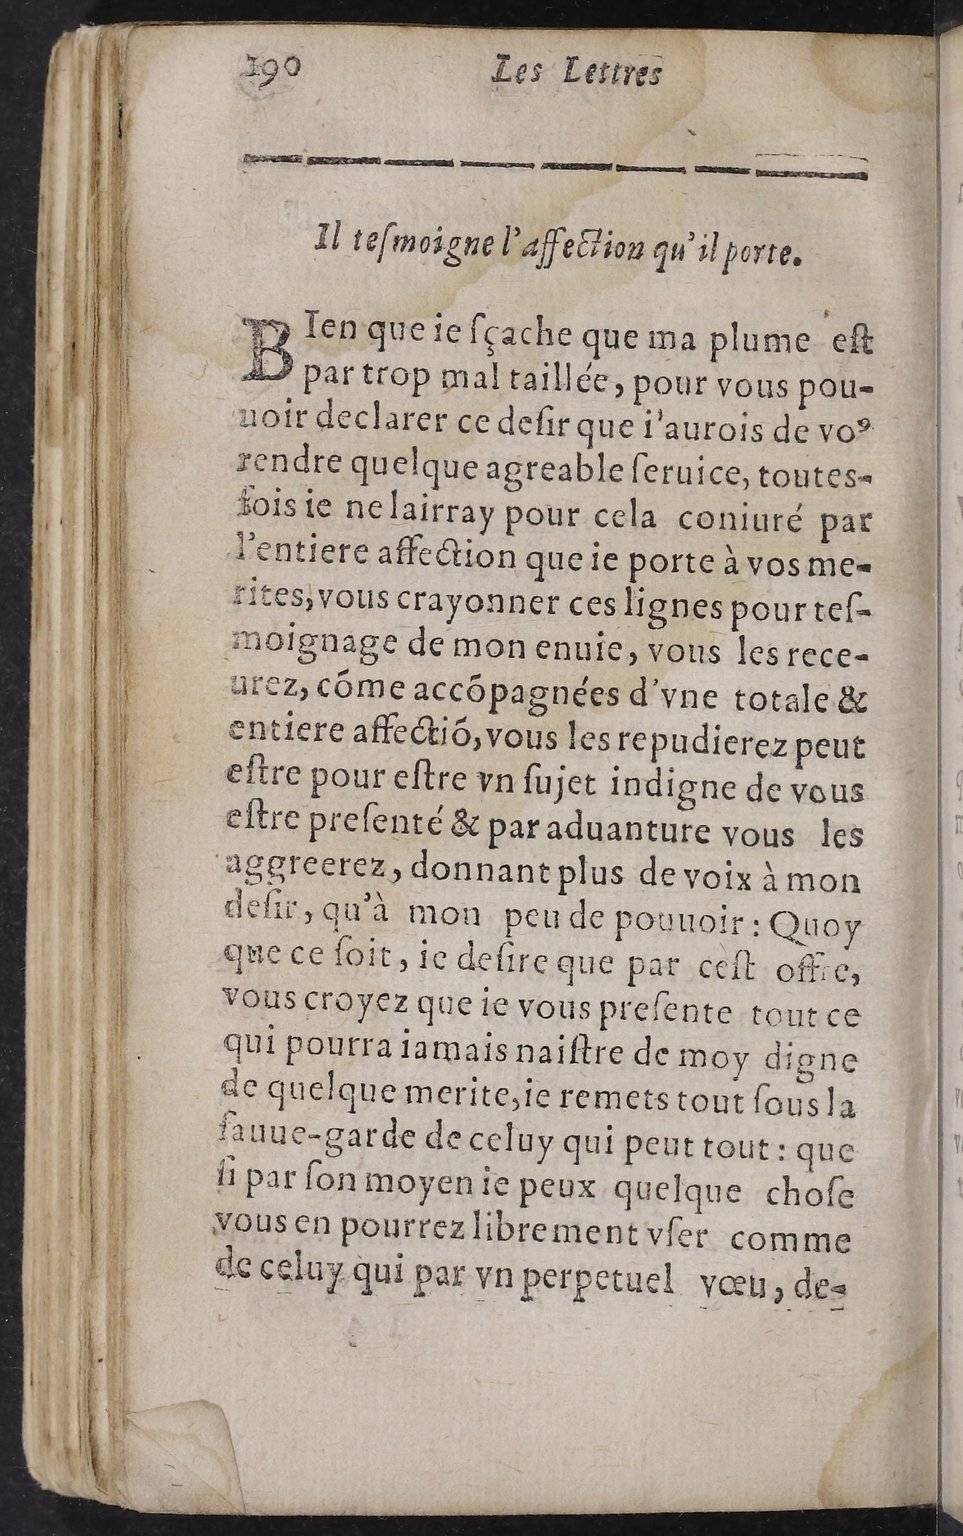 190 Les Lettres
Il teſmoigne l'affection qu'il porte.
BIen que ie ſçache que ma plume eſt
par trop mal taillée, pour vous pou-
uoir declarer ce deſir que i'aurois de voꝰ
rendre quelque agreable ſeruice, toutes-
fois ie ne lairray pour cela coniuré par
l'entiere affection que ie porte à vos me-
rites, vous crayonner ces lignes pour teſ-
moignage de mon enuie, vous les rece-
urez, cóme accópagnées d'vne totale &
entiere affectió, vous les repudierez peut
eſtre pour eſtre vn ſujet indigne de vous
eſtre preſenté & par aduanture vous les
aggreerez, donnant plus de voix à mon
deſir, qu'à mon peu de pouuoir : Quoy
que ce ſoit, ie deſire que par ceſt offre,
vous croyez que ie vous preſente tout ce
qui pourra iamais naiſtre de moy digne
de quelque merite, ie remets tout ſous la
ſauue-garde de celuy qui peut tout : que
ſi par ſon moyen ie peux quelque choſe
vous en pourrez librement vſer comme
de celuy qui par vn perpetuel vœu, de-